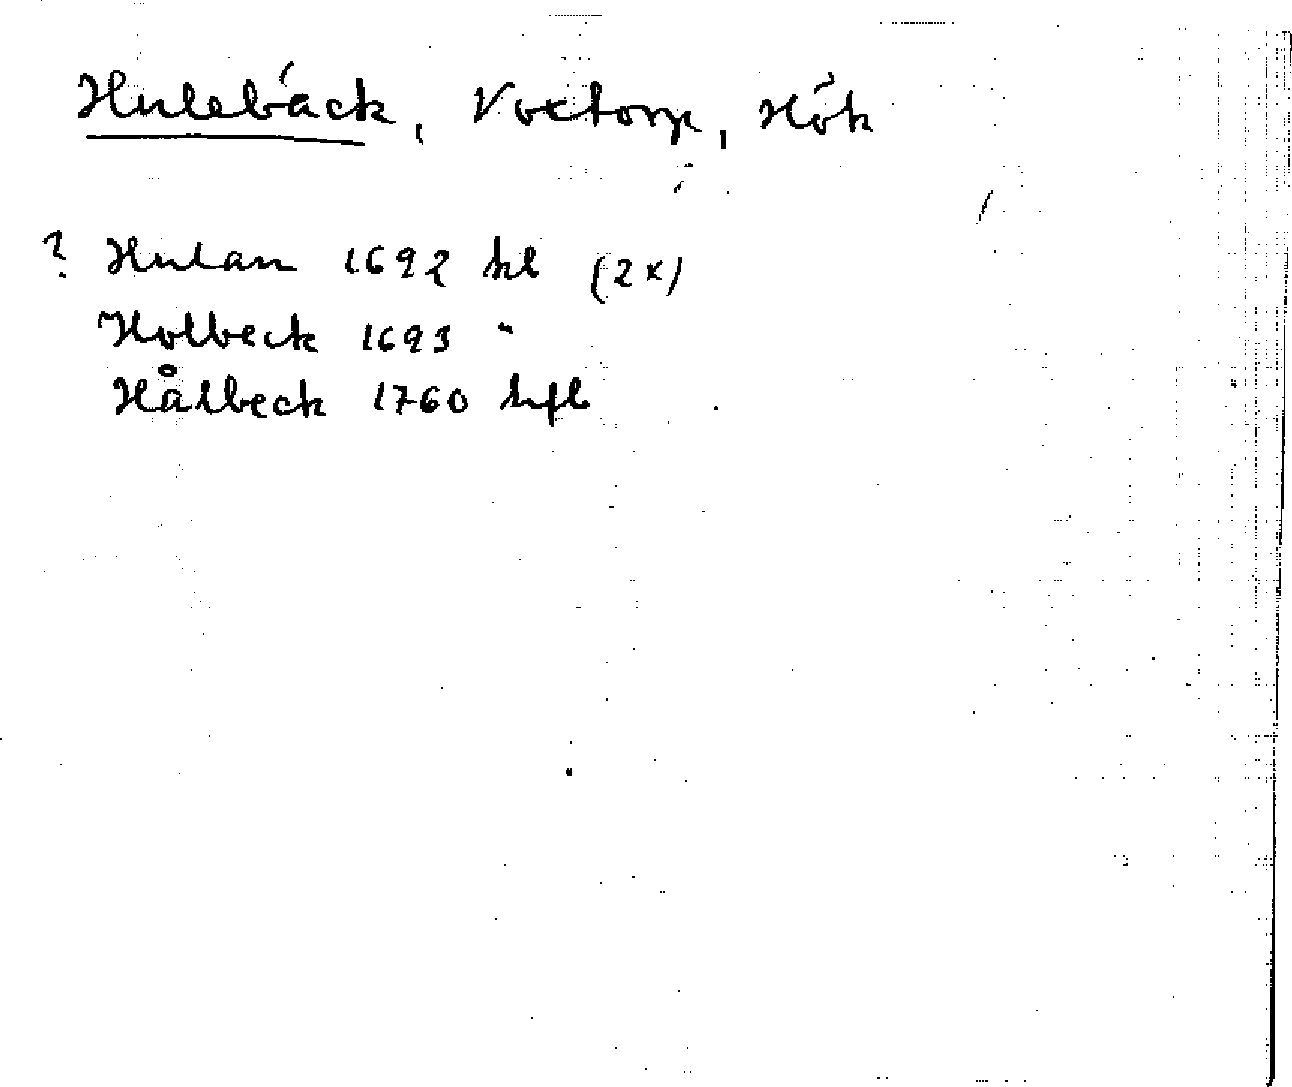 Hulebäck, Voxtorp, Hök
? Hulan 1692 hl (2x)
Holbeck 1693 "
Hålbeck 1760 hfl